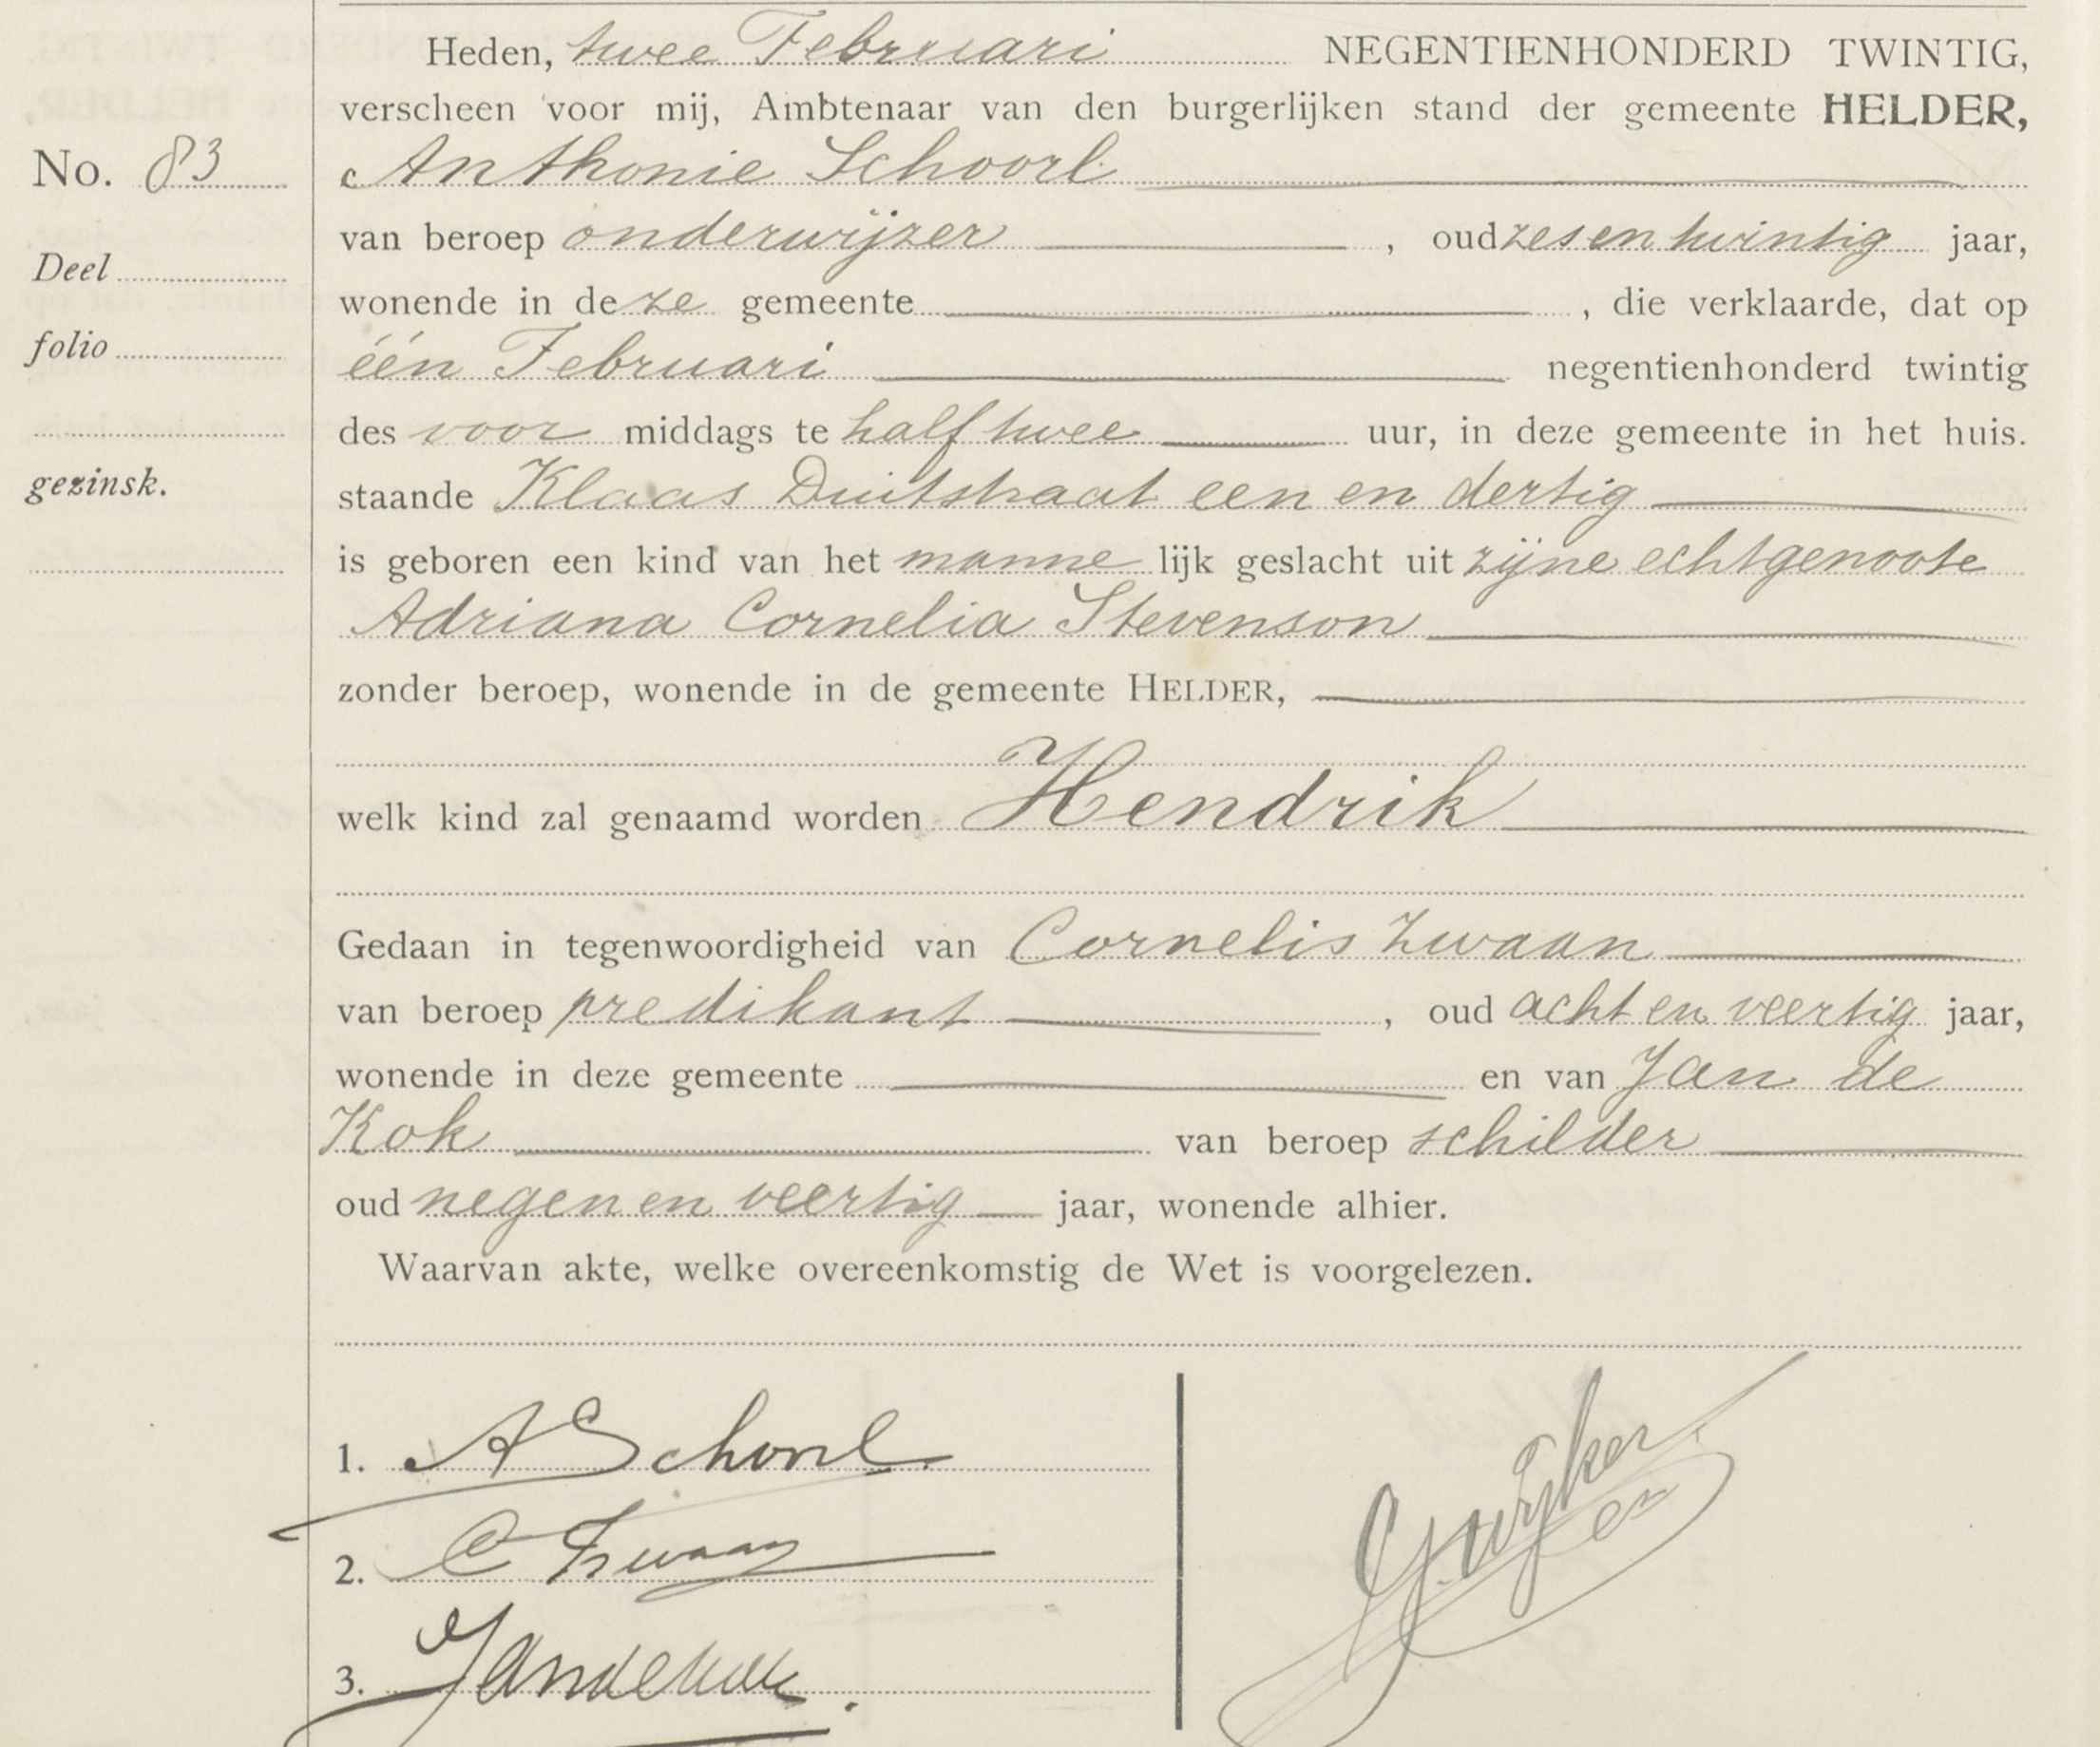 Heden, twee Februari NEGENTIENHONDERD TWINTIG,
verscheen voor mij, Ambtenaar van den burgerlijken stand der gemeente HELDER,
No. 83
Anthonie Schoorl
van beroep onderwijzer, oud zes en twintig jaar,
Deel
wonende in deze gemeente, die verklaarde, dat op
folio
één Februari negentienhonderd twintig
des voor middags te half twee uur, in deze gemeente in het huis.
gezinsk.
staande Klaas Duitstraat een en dertig
is geboren een kind van het mannelijk geslacht uit zijne echtgenoote
Adriana Cornelia Stevenson
zonder beroep, wonende in de gemeente HELDER,
welk kind zal genaamd worden Hendrik
Gedaan in tegenwoordigheid van Cornelis Zwaan
van beroep predikant, oud acht en veertig jaar,
wonende in deze gemeente en van Jan de
Kok van beroep schilder
oud negen en veertig jaar, wonende alhier.
Waarvan akte, welke overeenkomstig de Wet is voorgelezen.
1. A Schoorl
2. C Zwaan
3. Jan de Kok.